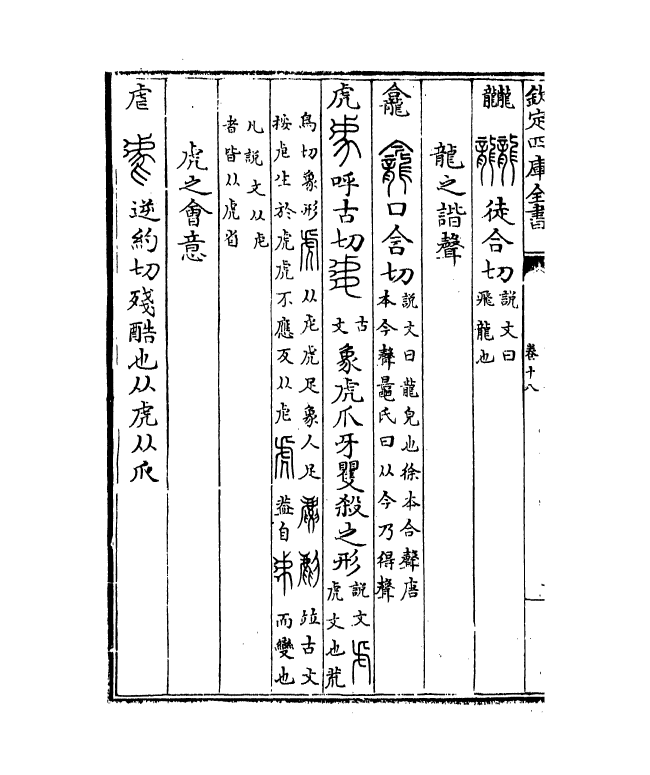 欽定四庫全書
卷十八
龖 徒合切說文曰飛龍也
龍之諧聲
龕 口含切說文曰龍皃也徐本合聲唐本今聲鼂氏曰从今乃得聲
虎 呼古切古文象虎爪牙矍殺之形說文虎文也荒
烏切象形从虍虎足象人足竝古文按虍生於虎虎不應反从虍葢自而變也
凡說文从虍者皆从虎省
虎之會意
虐 逆約切殘酷也从虎从爪